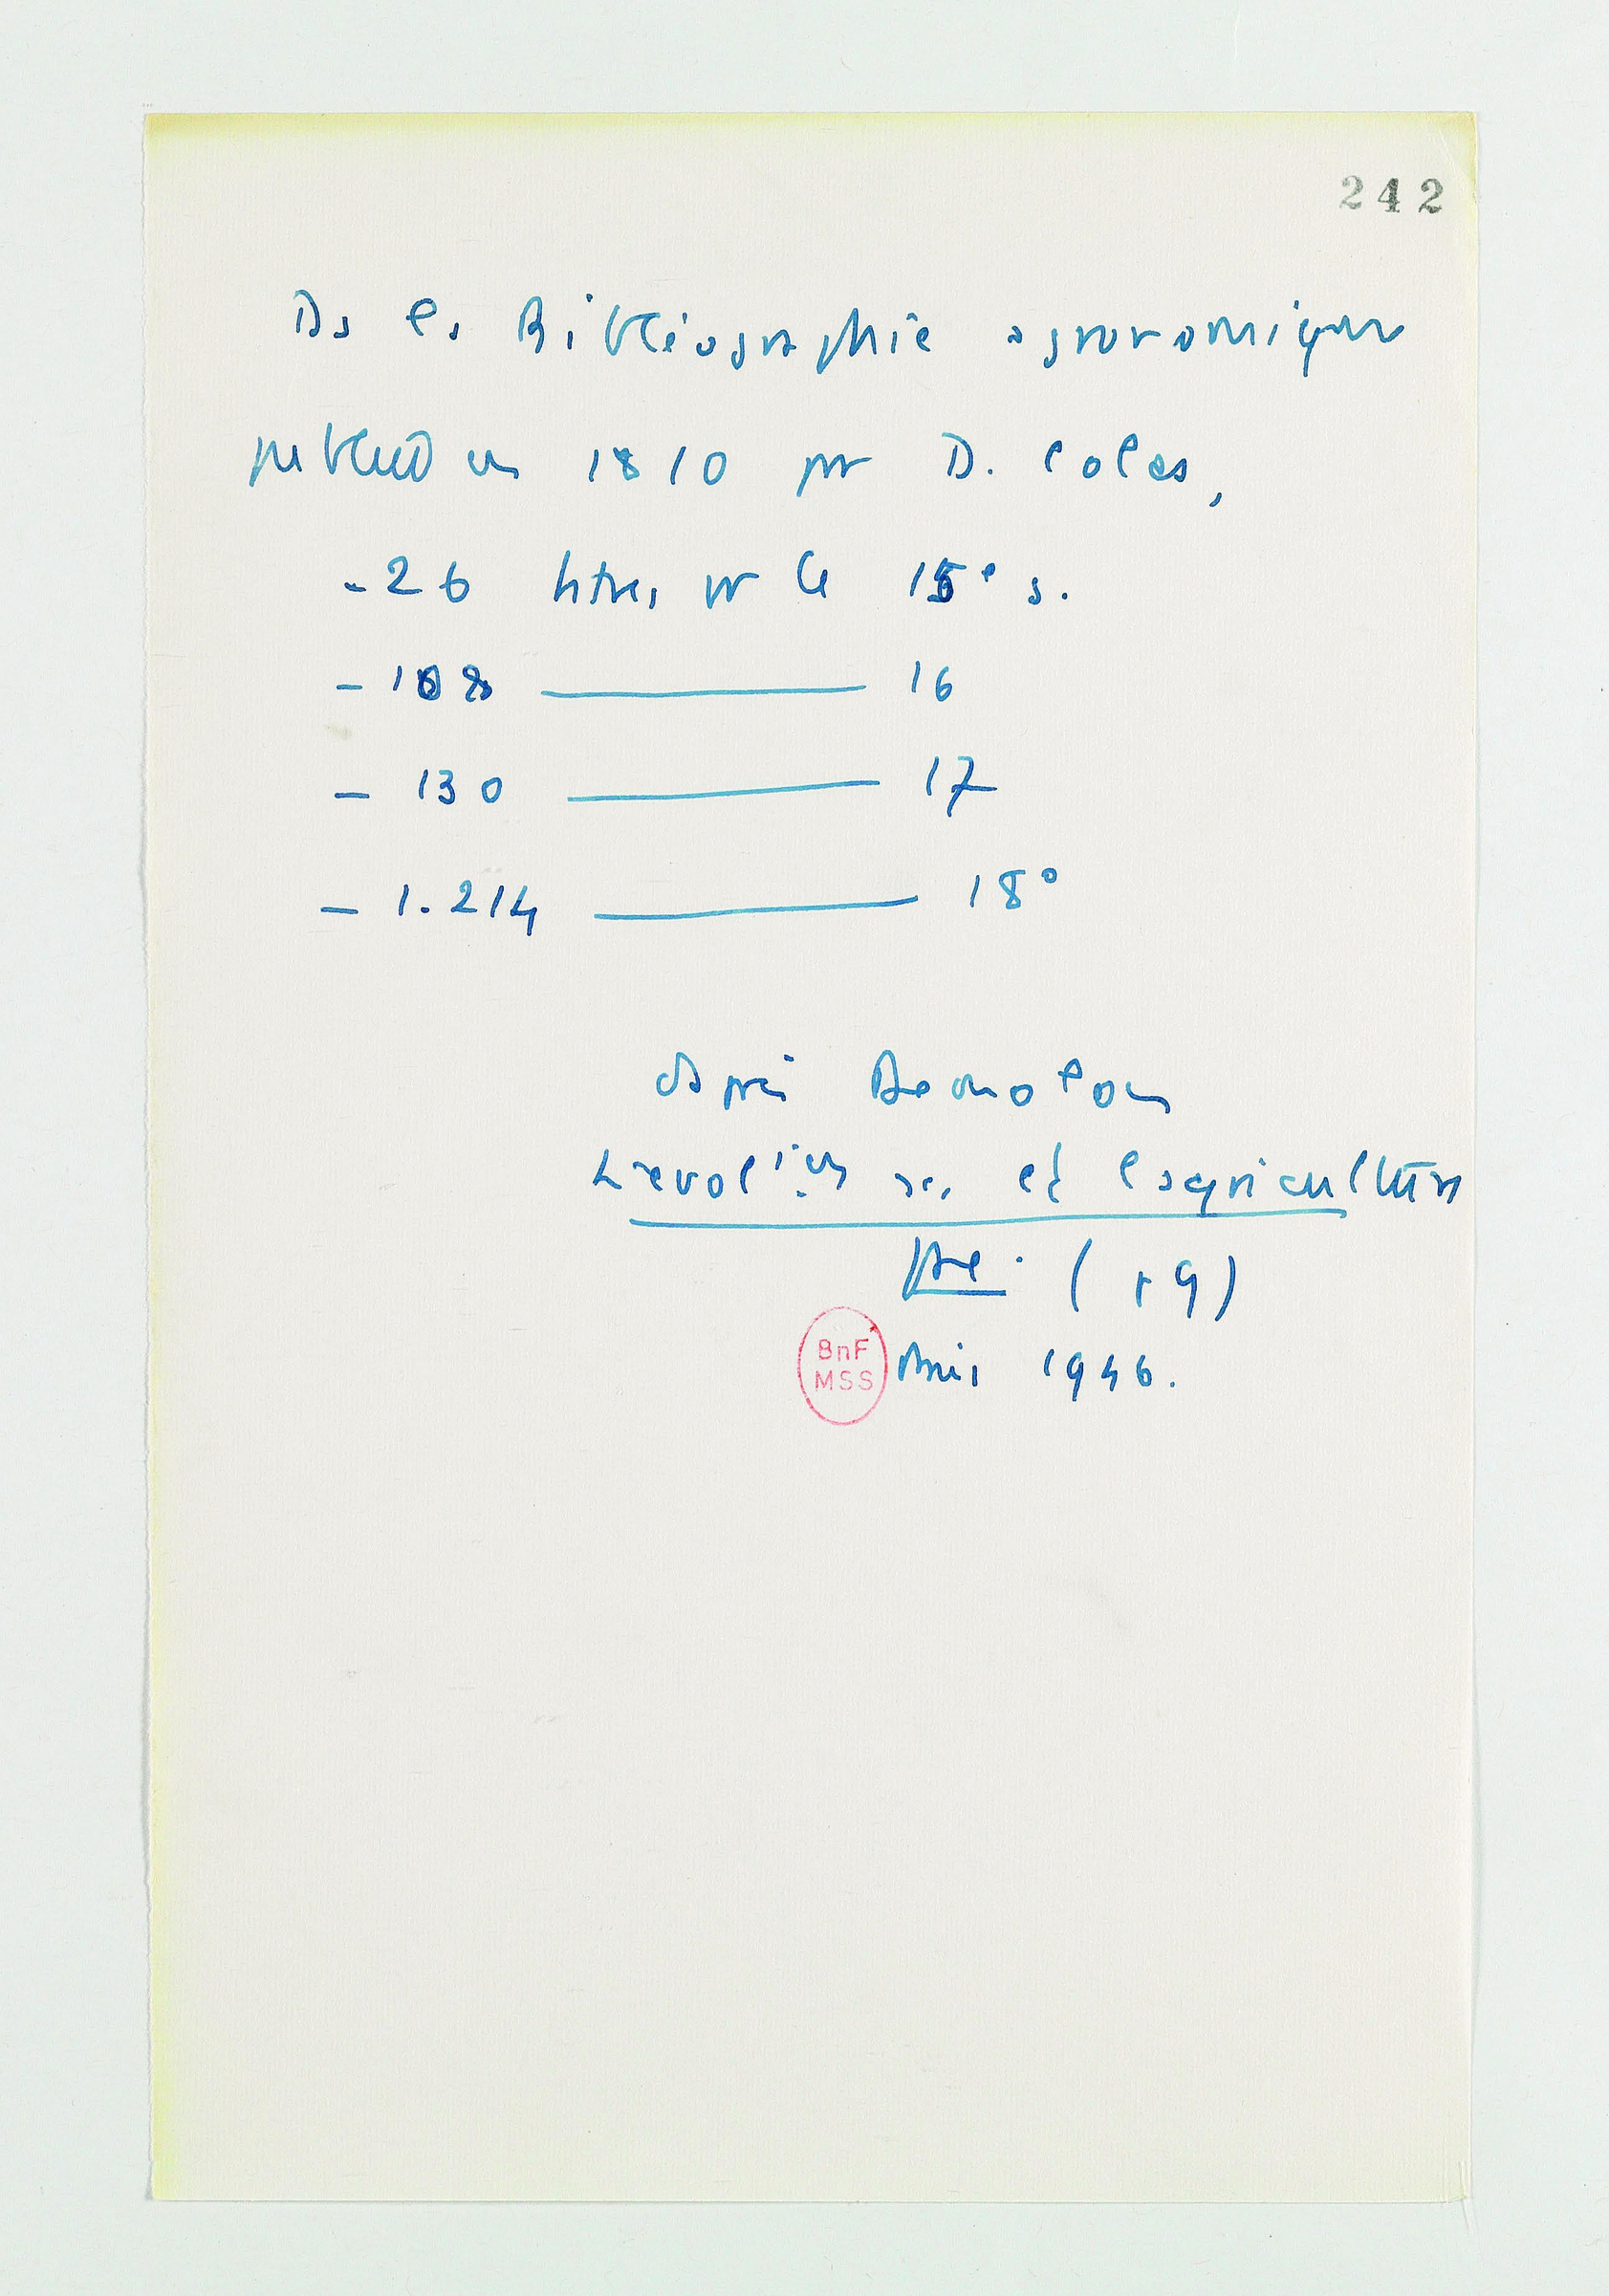 242
Ds la Bibliographie agronomique
publiée en 1810 par D. Colas,
- 26 titres pr le 15e s.
- 108 ——— 16
- 130 ——— 17
- 1.214 ——— 18°
d'après Demolon
L'evol°n sc. et l'agriculture
fse. (p 9)
Paris 1946.
BnF
MSS